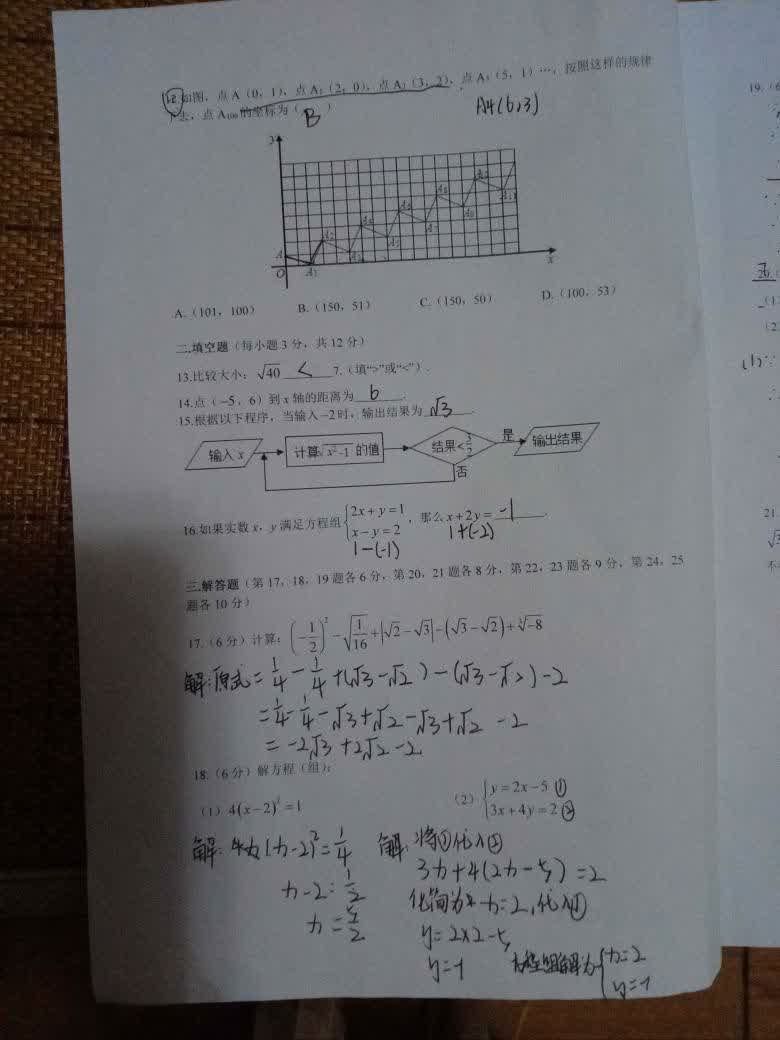 12.如图，点A（0，1），点A₁（2，0），点A₂（3，2），点A₃（5，1）…，按照这样的规律
下去，点A₁₀₀的坐标为（ B ）
A4(6,3)
A.（101，100） B.（150，51） C.（150，50） D.（100，53）
二.填空题（每小题3分，共12分）
13.比较大小：√40 < 7.（填“>”或“<”）.
14.点（−5，6）到x轴的距离为 6 .
15.根据以下程序，当输入−2时，输出结果为 √3 .
输入x 计算√(x²−1)的值 结果<3/2 是 输出结果
否
16.如果实数x，y满足方程组{2x+y=1 x−y=2，那么x+2y= -1 .
1-(-1) 1+(-2)
三.解答题（第17，18，19题各6分，第20，21题各8分，第22，23题各9分，第24，25
题各10分）
17.（6分）计算：(−1/2)²−√(1/16)+|√2−√3|−(√3−√2)+∛−8
解:原式=1/4-1/4+(√3-√2)-(√3-√2)-2
=1/4-1/4-√3+√2-√3+√2-2
=-2√3+2√2-2
18.（6分）解方程（组）：
（1）4(x−2)²=1 （2）{y=2x−5 ① 3x+4y=2 ②
解: (x-2)²=1/4
x-2=1/2
x=5/2
解:将①代入②
3x+4(2x-5)=2
化简为 x=2,代入①
y=2×2-5
y=-1
方程组解为{x=2 y=-1
19.（6
20.
（1
（2
(1)∵
21.